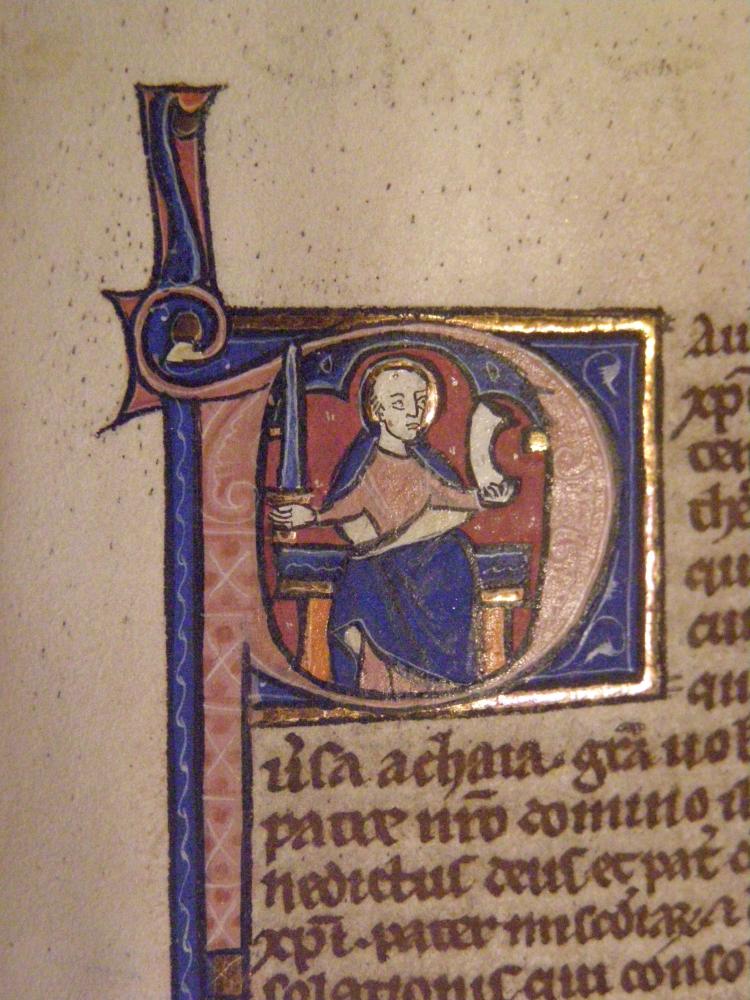 P
Au
xp̄i
cen
thē
qu
cui
qu
uͥsa achaia. gr̄a uob
patre nr̄o domino ih
nedictus deus et pat̓ d
xp̄i. pater
solationis qui conso